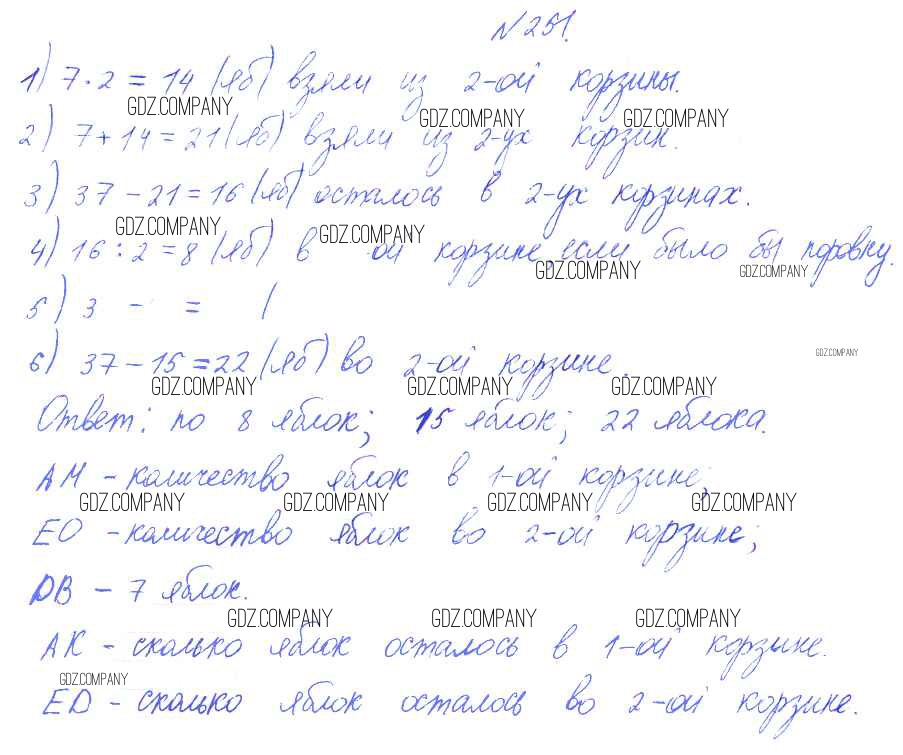 N 251.
1) 7 · 2 = 14 (яб) взяли из 2-ой корзины.
GDZ.COMPANY GDZ.COMPANY GDZ.COMPANY
2) 7 + 14 = 21 (яб) взяли из 2-ух корзин.
3) 37 - 21 = 16 (яб) осталось в 2-ух корзинах.
GDZ.COMPANY GDZ.COMPANY
4) 16 : 2 = 8 (яб) в -ой корзине, если было бы поровну.
GDZ.COMPANY GDZ.COMPANY
5) 3 - = (
6) 37 - 15 = 22 (яб) во 2-ой корзине.
GDZ.COMPANY
GDZ.COMPANY GDZ.COMPANY GDZ.COMPANY
Ответ: по 8 яблок; 15 яблок; 22 яблока.
АМ - количество яблок в 1-ой корзине;
GDZ.COMPANY GDZ.COMPANY GDZ.COMPANY GDZ.COMPANY
ЕО - количество яблок во 2-ой корзине;
DB - 7 яблок.
GDZ.COMPANY GDZ.COMPANY GDZ.COMPANY
АК - сколько яблок осталось в 1-ой корзине.
GDZ.COMPANY
ED - сколько яблок осталось во 2-ой корзине.